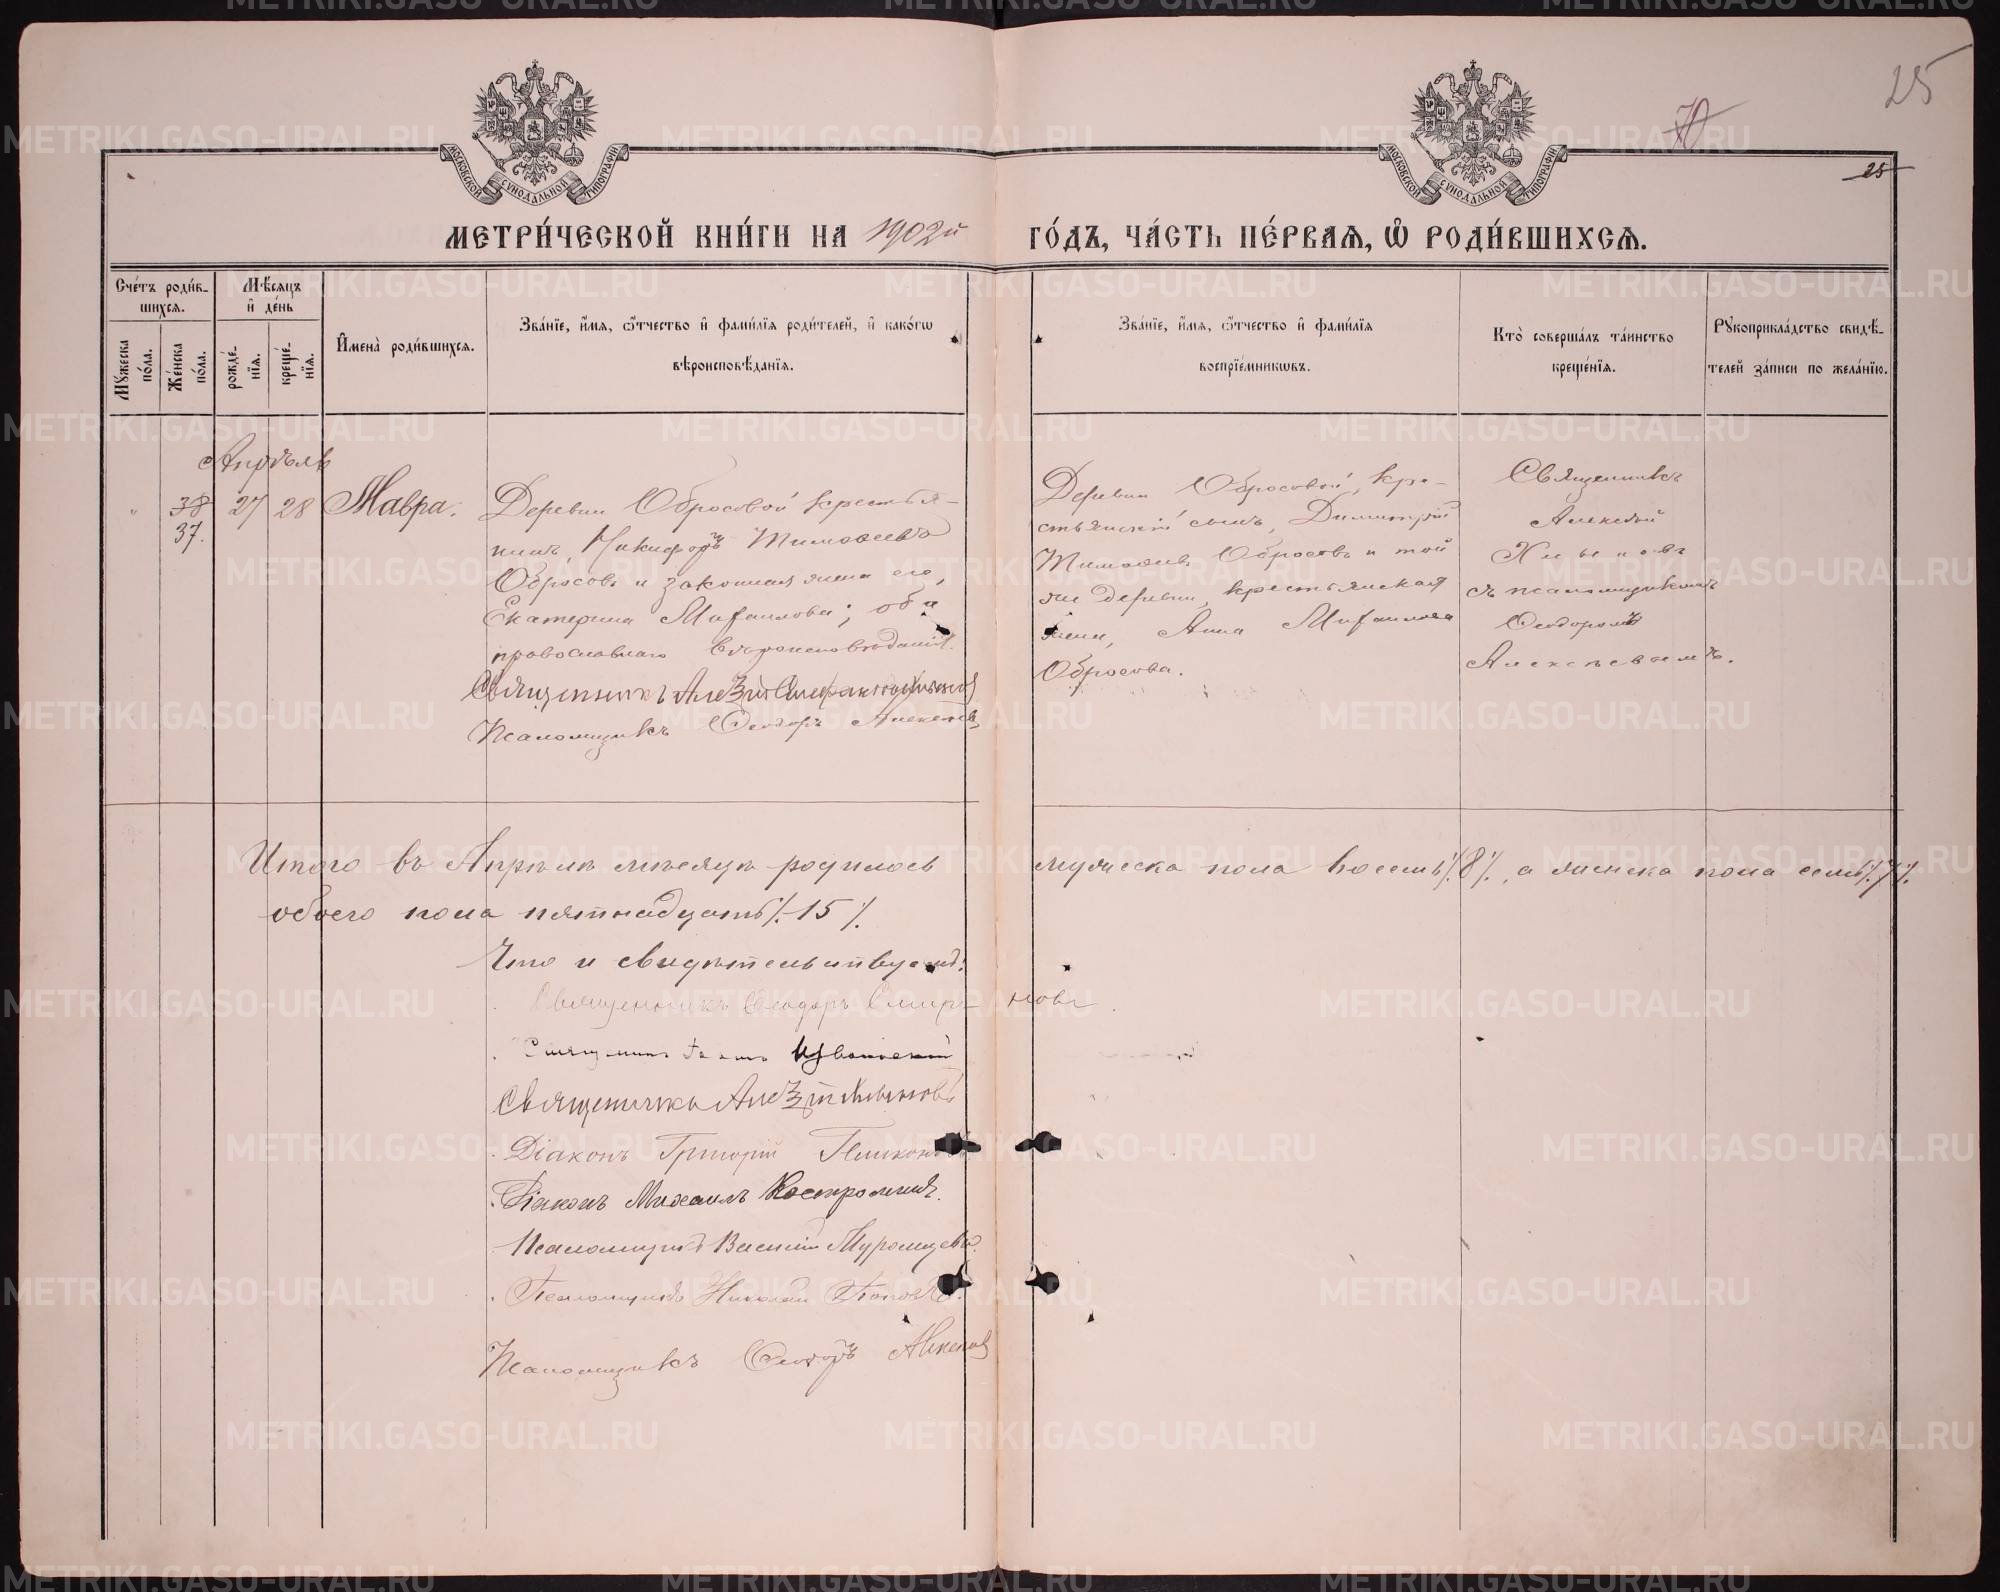 25
70
25
МОСКОВСКОЙ СУНОДАЛЬНОЙ ТИПОГРАФІИ
МОСКОВСКОЙ СУНОДАЛЬНОЙ ТИПОГРАФІИ
МЕТРИ́ЧЕСКОЙ КНИ́ГИ НА 1902й ГО́ДЪ, ЧА́СТЬ ПЕ́РВАЯ, Ѡ РОДИ́ВШИХСЯ.
Счéтъ роди́в-
шихся.
Мꙋжеска
по́ла.
Же́нска
по́ла.
Мѣ́сяцъ
и́ де́нь
рожде́-
нїя.
креще́-
нїя.
И́мена̀ роди́вшихся.
Зва́нїе, и́мя, ѻ́тчество и́ фами́лїя роди́телей, и́ како́гѡ
вѣроисповѣ́данїя.
Зва́нїе, и́мя, ѻ́тчество и́ фами́лїя
воспрїе́мникѡвъ.
Кто̀ соверша́лъ та́инство
креще́нїя.
Рꙋкоприкла́дство свидѣ́-
телей за́писи по жела́нїю.
Апрѣль
„ 38 27 28 Мавра.
37.
Деревни Обросовой крестья-
нинъ, Никифоръ Тимоѳеевъ
Обросовъ и законная жена его,
Екатерина Михаилова; оба
православнаго вѣроисповѣданія.
Священникъ
Псаломщикъ Ѳеодоръ Алексѣевъ
Деревни Обросовой, кре-
стьянскій сынъ, Димитрій
Тимоѳеевъ Обросовъ и той
же деревни, крестьянская
жена, Анна Михаилова
Обросова.
Священникъ
Алексѣй
Хлыновъ
съ псаломщикомъ
Ѳеодоромъ
Алексѣевымъ.
Итого въ Апрѣлѣ мѣсяцѣ родилось мужеска пола восемь /. 8 /., а женска пола семь /. 7 /.
обоего пола пятнадцать /. 15 /.
Что и свидѣтельствуемъ:
Священникъ Ѳеодоръ Смирновъ
Священникъ
Священникъ Алексѣй Хлыновъ
Діаконъ Григорій
Діаконъ Михаилъ Костроминъ.
Псаломщикъ Василій Муромцевъ.
Псаломщикъ Николай Поповъ.
Псаломщикъ Ѳеодоръ Алексѣевъ
METRIKI.GASO-URAL.RU